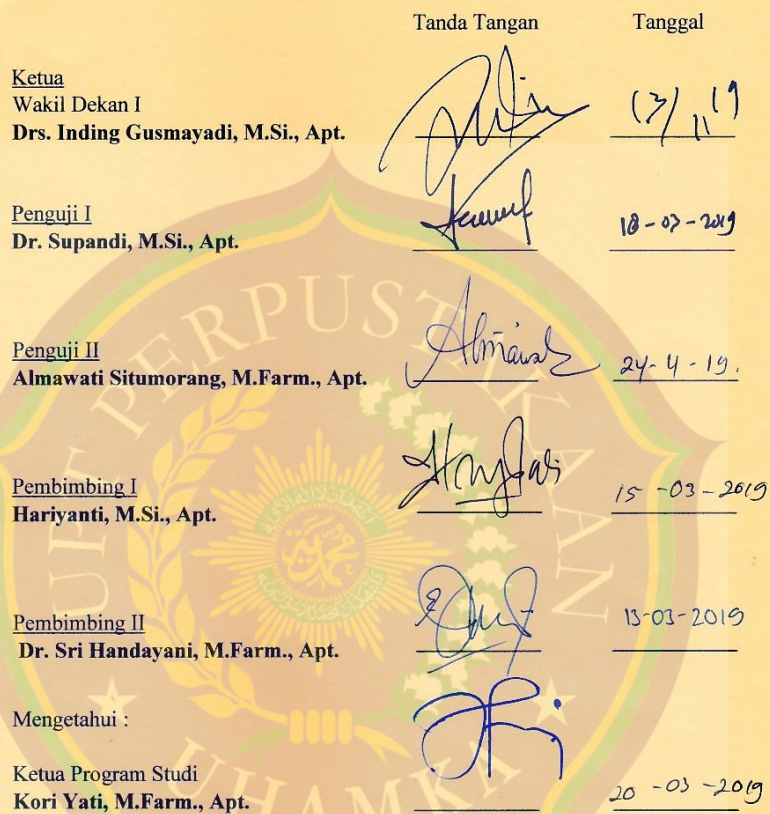 Tanda Tangan Tanggal
Ketua
Wakil Dekan I
Drs. Inding Gusmayadi, M.Si., Apt.
Penguji I
Dr. Supandi, M.Si., Apt. 18-03-2019
Penguji II
Almawati Situmorang, M.Farm., Apt. 24-4-19.
Pembimbing I
Hariyanti, M.Si., Apt. 15-03-2019
Pembimbing II
Dr. Sri Handayani, M.Farm., Apt. 13-03-2019
Mengetahui :
Ketua Program Studi
Kori Yati, M.Farm., Apt. 20-03-2019
UPT PERPUSTAKAAN
UHAMKA